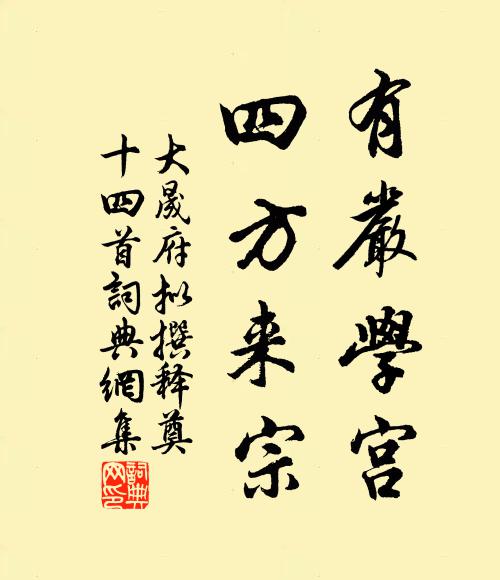 有嚴學宮
四方来宗
大晟府拟撰释奠
十四首詞典網集
詞典网印